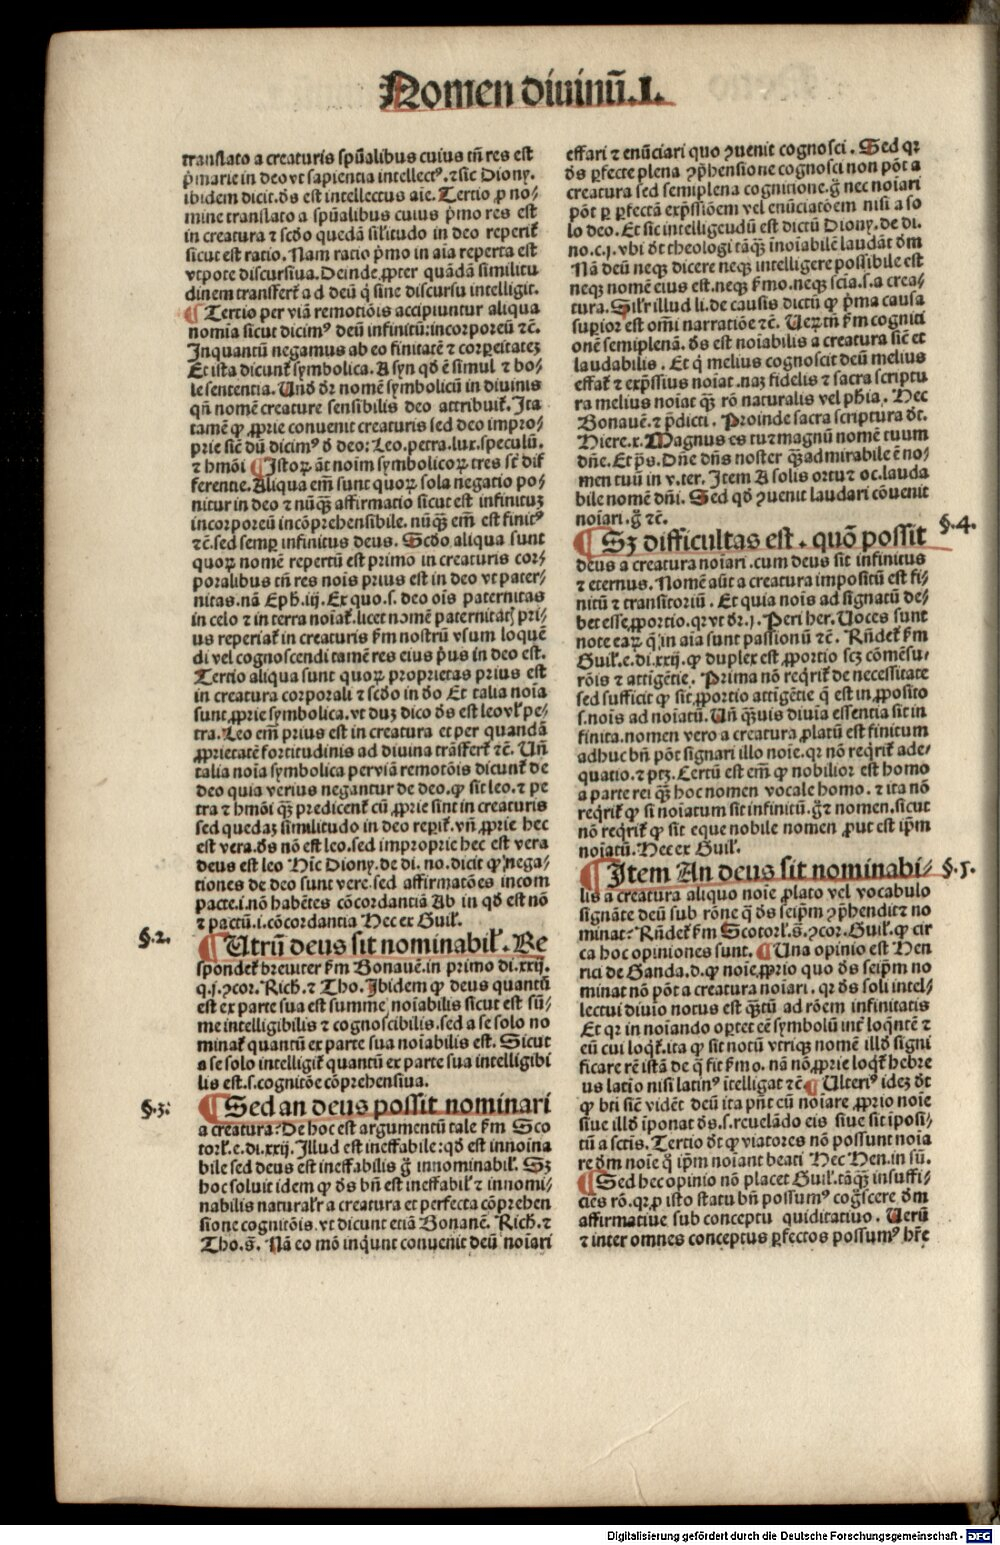 Nomen diuinū.I.
translato a creaturis spūalibus cuius tn̄ res est
p̄marie in deo vt sapientia intellect⁹.⁊ sic Diony.
ibidem dicit.d̄s est intellectus aīe.Tertio ꝓ no⸗
mine translato a spūalibus cuius p̄mo res est
in creatura ⁊ scd̄o quedā sil'itudo in deo reperit͛
sicut est ratio. Nam ratio p̄mo in aīa reperta est
vtpote discursiua. Deinde ꝓpter quādā similitu
dinem transfert͛ ad deū q̄ sine discursu intelligit.
¶ Tertio per viā remotiōis accipiuntur aliqua
nomīa sicut dicim⁹ deū infinitū:incorporeū ⁊c̄.
Inquantū negamus ab eo finitatē ⁊ corꝑeitateꝫ
Et ista dicunt͛ symbolica. A syn qd̄ ē simul ⁊ bo⸗
le sententia. Un̄d d̄r nomē symbolicū in diuinis
qn̄ nomē creature sensibilis deo attribuit͛. Ita
tamē ꝙ ꝓprie conuenit creaturis sed deo impro⸗
prie sic̄ dū dicim⁹ d̄ deo: Leo.petra.lux.speculū.
⁊ hmōi ¶ Istoꝝ āt noīm symbolicoꝝ tres st̄ dif
ferentie. Aliqua em̄ sunt quoꝝ sola negatio po⸗
nitur in deo ⁊ nūꝗ̄ affirmatio sicut est infinituꝫ
incorporeū incōprehensibile. nūꝗ̄ em̄ est finit⁹
⁊c̄.sed semꝑ infinitus deus. Scd̄o aliqua sunt
quoꝝ nomē repertū est primo in creaturis cor⸗
poralibus tn̄ res noīs prius est in deo vt pater⸗
nitas.nā Eph.iij. Ex quo.s. deo oīs paternitas
in celo ⁊ in terra noīat͛.licet nomē paternitatꝭ pri⸗
us reperiat͛ in creaturis ẜm nostrū vsum loquē
di vel cognoscendi tamē res eius p̄us in deo est.
Tertio aliqua sunt quoꝝ proprietas prius est
in creatura corporali ⁊ scd̄o in d̄o Et talia noīa
sunt ꝓprie symbolica.vt duꝫ dico d̄s est leo vl' pe⸗
tra. Leo em̄ prius est in creatura et per quandā
ꝓprietatē fortitudinis ad diuina trāsfert͛ ⁊c̄. Un̄
talia noīa symbolica per viā remotōis dicunt͛ de
deo quia verius negantur de deo.ꝙ sit leo.⁊ pe
tra ⁊ hmōi ꝗ̄ predicent͛ cū ꝓprie sint in creaturis
sed quedaꝫ similitudo in deo reꝑit͛.vn̄ ꝓprie hec
est vera.d̄s nō est leo.sed improprie hec est vera
deus est leo Hic Diony.de di. no.dicit ꝙ nega⸗
tiones de deo sunt vere.sed affirmatōes incom
pacte.i.nō habētes cōcordantiā Ab in qd̄ est nō
⁊ pactū.i.cōcordantia Hec ex Guil'.
§.2.
¶ Utrū deus sit nominabil'. Re
spondet͛ breuiter ẜm Bonauē.in primo di.xxij.
q.j.ꝯcor. Rich. ⁊ Tho. Ibidem ꝙ deus quantū
est ex parte sua est summe noīabilis sicut est sū⸗
me intelligibilis ⁊ cognoscibilis.sed a se solo no
minat͛ quantū ex parte sua noīabilis est. Sicut
a se solo intelligit͛ quantū ex parte sua intelligibi
lis est.s.cognitōe cōprehensiua.
§.3.
¶ Sed an deus possit nominari
a creatura: De hoc est argumentū tale ẜm Sco
torl'.e.di.xxij. Illud est ineffabile:qd̄ est innoīna
bile sed deus est ineffabilis g̊ innominabil'. Sꝫ
hoc soluit idem ꝙ d̄s bn̄ est ineffabil' ⁊ innomi⸗
nabilis natural'r a creatura et perfecta cōprehen
sione cognitōis.vt dicunt etiā Bonauē. Rich. ⁊
Tho.s̄. Nā eo mō inq̄unt conuenit deū noīari
effari ⁊ enūciari quo ꝯuenit cognosci. Sed qr
d̄s ꝑfecte plena ꝯp̄hensione cognosci non pōt a
creatura sed semiplena cognitione.g̊ nec noīari
pōt ꝑ ꝑfectā exp̄ssiōem vel enūciatōem nisi a so
lo deo. Et sic intelligendū est dictū Diony.de di.
no.c.j.vbi d̄t theologi tāꝗ̄ īnoīabilē laudāt dm̄
Nā deū neqꝫ dicere neqꝫ intelligere possibile est
neqꝫ nomē eius est.neqꝫ ẜmo.neqꝫ scīa.s.a crea⸗
tura. Sil'r illud li.de causis dictū ꝙ p̄ma causa
suꝑior est omī narratiōe ⁊c̄. Ueꝝtn̄ ẜm cogniti
onē semiplenā. d̄s est noīabilis a creatura sic̄ et
laudabilis. Et q̄ melius cognoscit deū melius
effat͛ ⁊ exp̄ssius noīat.naꝫ fidelis ⁊ sacra scriptu
ra melius noīat ꝗ̄ rō naturalis vel ph̄ia. Hec
Bonauē.⁊ p̄dicti. Proinde sacra scriptura d̄t.
Hiere.x. Magnus es tu ⁊ magnū nomē tuum
dn̄e. Et p̄s. Dn̄e dn̄s noster ꝗ̄ admirabile ē no⸗
men tuū in v.ter. Item A solis ortu ⁊ oc.lauda
bile nomē dn̄i. Sed qd̄ ꝯuenit laudari cōuenit
noīari.g̊ ⁊c̄.
§.4.
¶ Sꝫ difficultas est. quō possit
deus a creatura noīari.cum deus sit infinitus
⁊ eternus. Nomē aūt a creatura impositū est fi⸗
nitū ⁊ transitoriū. Et quia noīs ad signatū de⸗
bet esse ꝓportio.qr vt d̄r.j. Peri her. Uoces sunt
note eaꝝ q̄ in aīa sunt passionū ⁊c̄. Rn̄det͛ ẜm
Guil'.e.di.xxij.ꝙ duplex est ꝓportio scꝫ cōmēsu⸗
rōis ⁊ attigētie. Prima nō reqrit͛ de necessitate
sed sufficit ꝙ sit ꝓportio attigētie q̄ est in ꝓposito
s.noīs ad noīatū. Un̄ ꝗ̄uis diuīa essentia sit in
finita.nomen vero a creatura ꝓlatū est finitum
adhuc bn̄ pōt signari illo noīe.qr nō reqrit͛ ade⸗
quatio.⁊ ptꝫ. Certū est em̄ ꝙ nobilior est homo
a parte rei ꝗ̄ hoc nomen vocale homo. ⁊ ita nō
reqrit͛ ꝙ si noīatum sit infinitū.g̊ ⁊ nomen.sicut
nō reqrit͛ ꝙ sit eque nobile nomen ꝓut est ip̄m
noīatū. Hec ex Guil'.
§.5.
¶ Item An deus sit nominabi⸗
lis a creatura aliquo noīe ꝓlato vel vocabulo
signāte deū sub rōne q̄ d̄s seip̄m ꝯp̄hendit ⁊ no
minat: Rn̄det͛ ẜm Scotorl'.s̄.ꝯcor. Guil'.ꝙ cir
ca hoc opiniones sunt. ¶ Una opinio est Hen
rici de Ganda.d.ꝙ noīe ꝓprio quo d̄s seip̄m no
minat nō pōt a creatura noīari. qr d̄s soli intel⸗
lectui diuīo notus est ꝗ̄tū ad rōem infinitatis
Et qr in noīando oꝑtet eē symbolū int͛ loq̄ntē ⁊
eū cui loqt͛.ita ꝙ sit notū vtriqꝫ nomē illd̄ signi
ficare rē istā de q̄ fit ẜmo. nā nō ꝓprie loqt͛ hebre
us latīo nisi latin⁹ ītelligat ⁊c̄ ¶ Ulteri⁹ ideꝫ d̄t
ꝙ bt̄i sic̄ vidēt deū ita pn̄t eū noīare ꝓprio noīe
siue illd̄ īponat d̄s.s.reuelādo eis siue sit īposi⸗
tū a sctīs. Tertio d̄t ꝙ viatores nō possunt noīa
re dm̄ noīe q̄ ip̄m noīant beati Hec Hen.in sū.
¶ Sed hec opinio nō placet Guil'.tāꝗ̄ insuffi⸗
ciēs rō.qr ꝓ isto statu bn̄ possum⁹ cog̊scere dm̄
affirmatiue sub conceptu quiditatiuo. Uerū
⁊ inter omnes conceptus ꝑfectos possum⁹ hr̄e
Digitalisierung gefördert durch die Deutsche Forschungsgemeinschaft - DFG